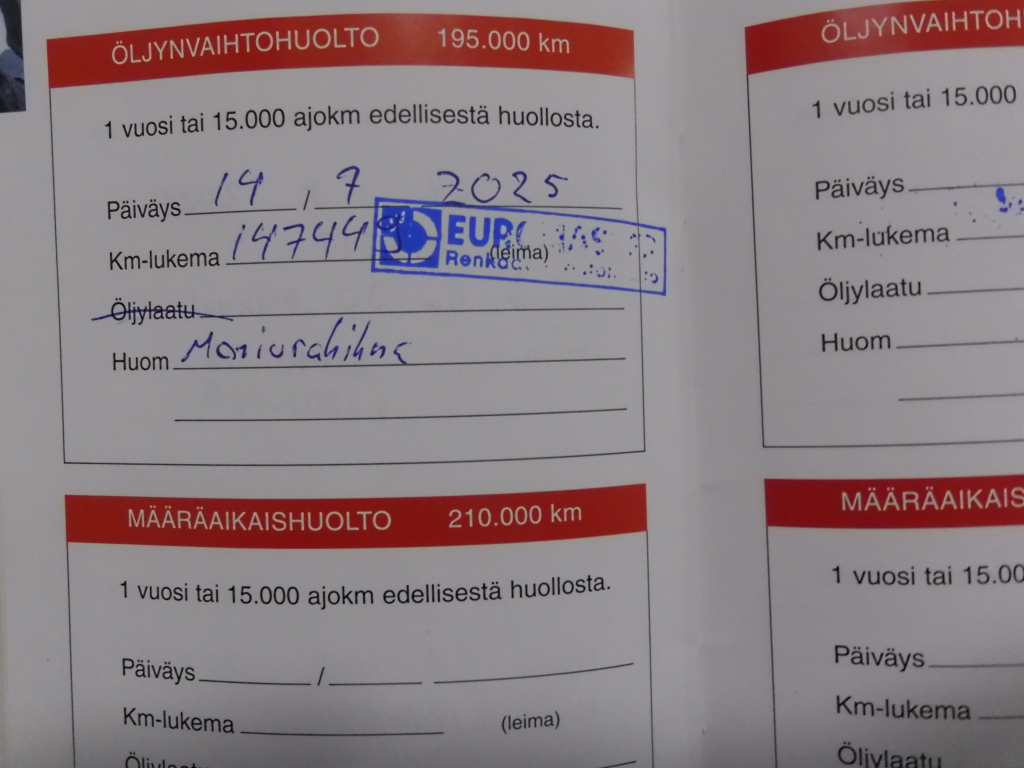 ÖLJYNVAIHTOHUOLTO 195.000 km
1 vuosi tai 15.000 ajokm edellisestä huollosta.
Päiväys 14 / 7 2025
Km-lukema 147449 (leima)
EURO
Öljylaatu
Huom Moniurahihna
MÄÄRÄAIKAISHUOLTO 210.000 km
1 vuosi tai 15.000 ajokm edellisestä huollosta.
Päiväys /
Km-lukema (leima)
Öljylaatu
ÖLJYNVAIHTOH
1 vuosi tai 15.000
Päiväys
Km-lukema
Öljylaatu
Huom
MÄÄRÄAIKAIS
1 vuosi tai 15.00
Päiväys
Km-lukema
Öljylaatu